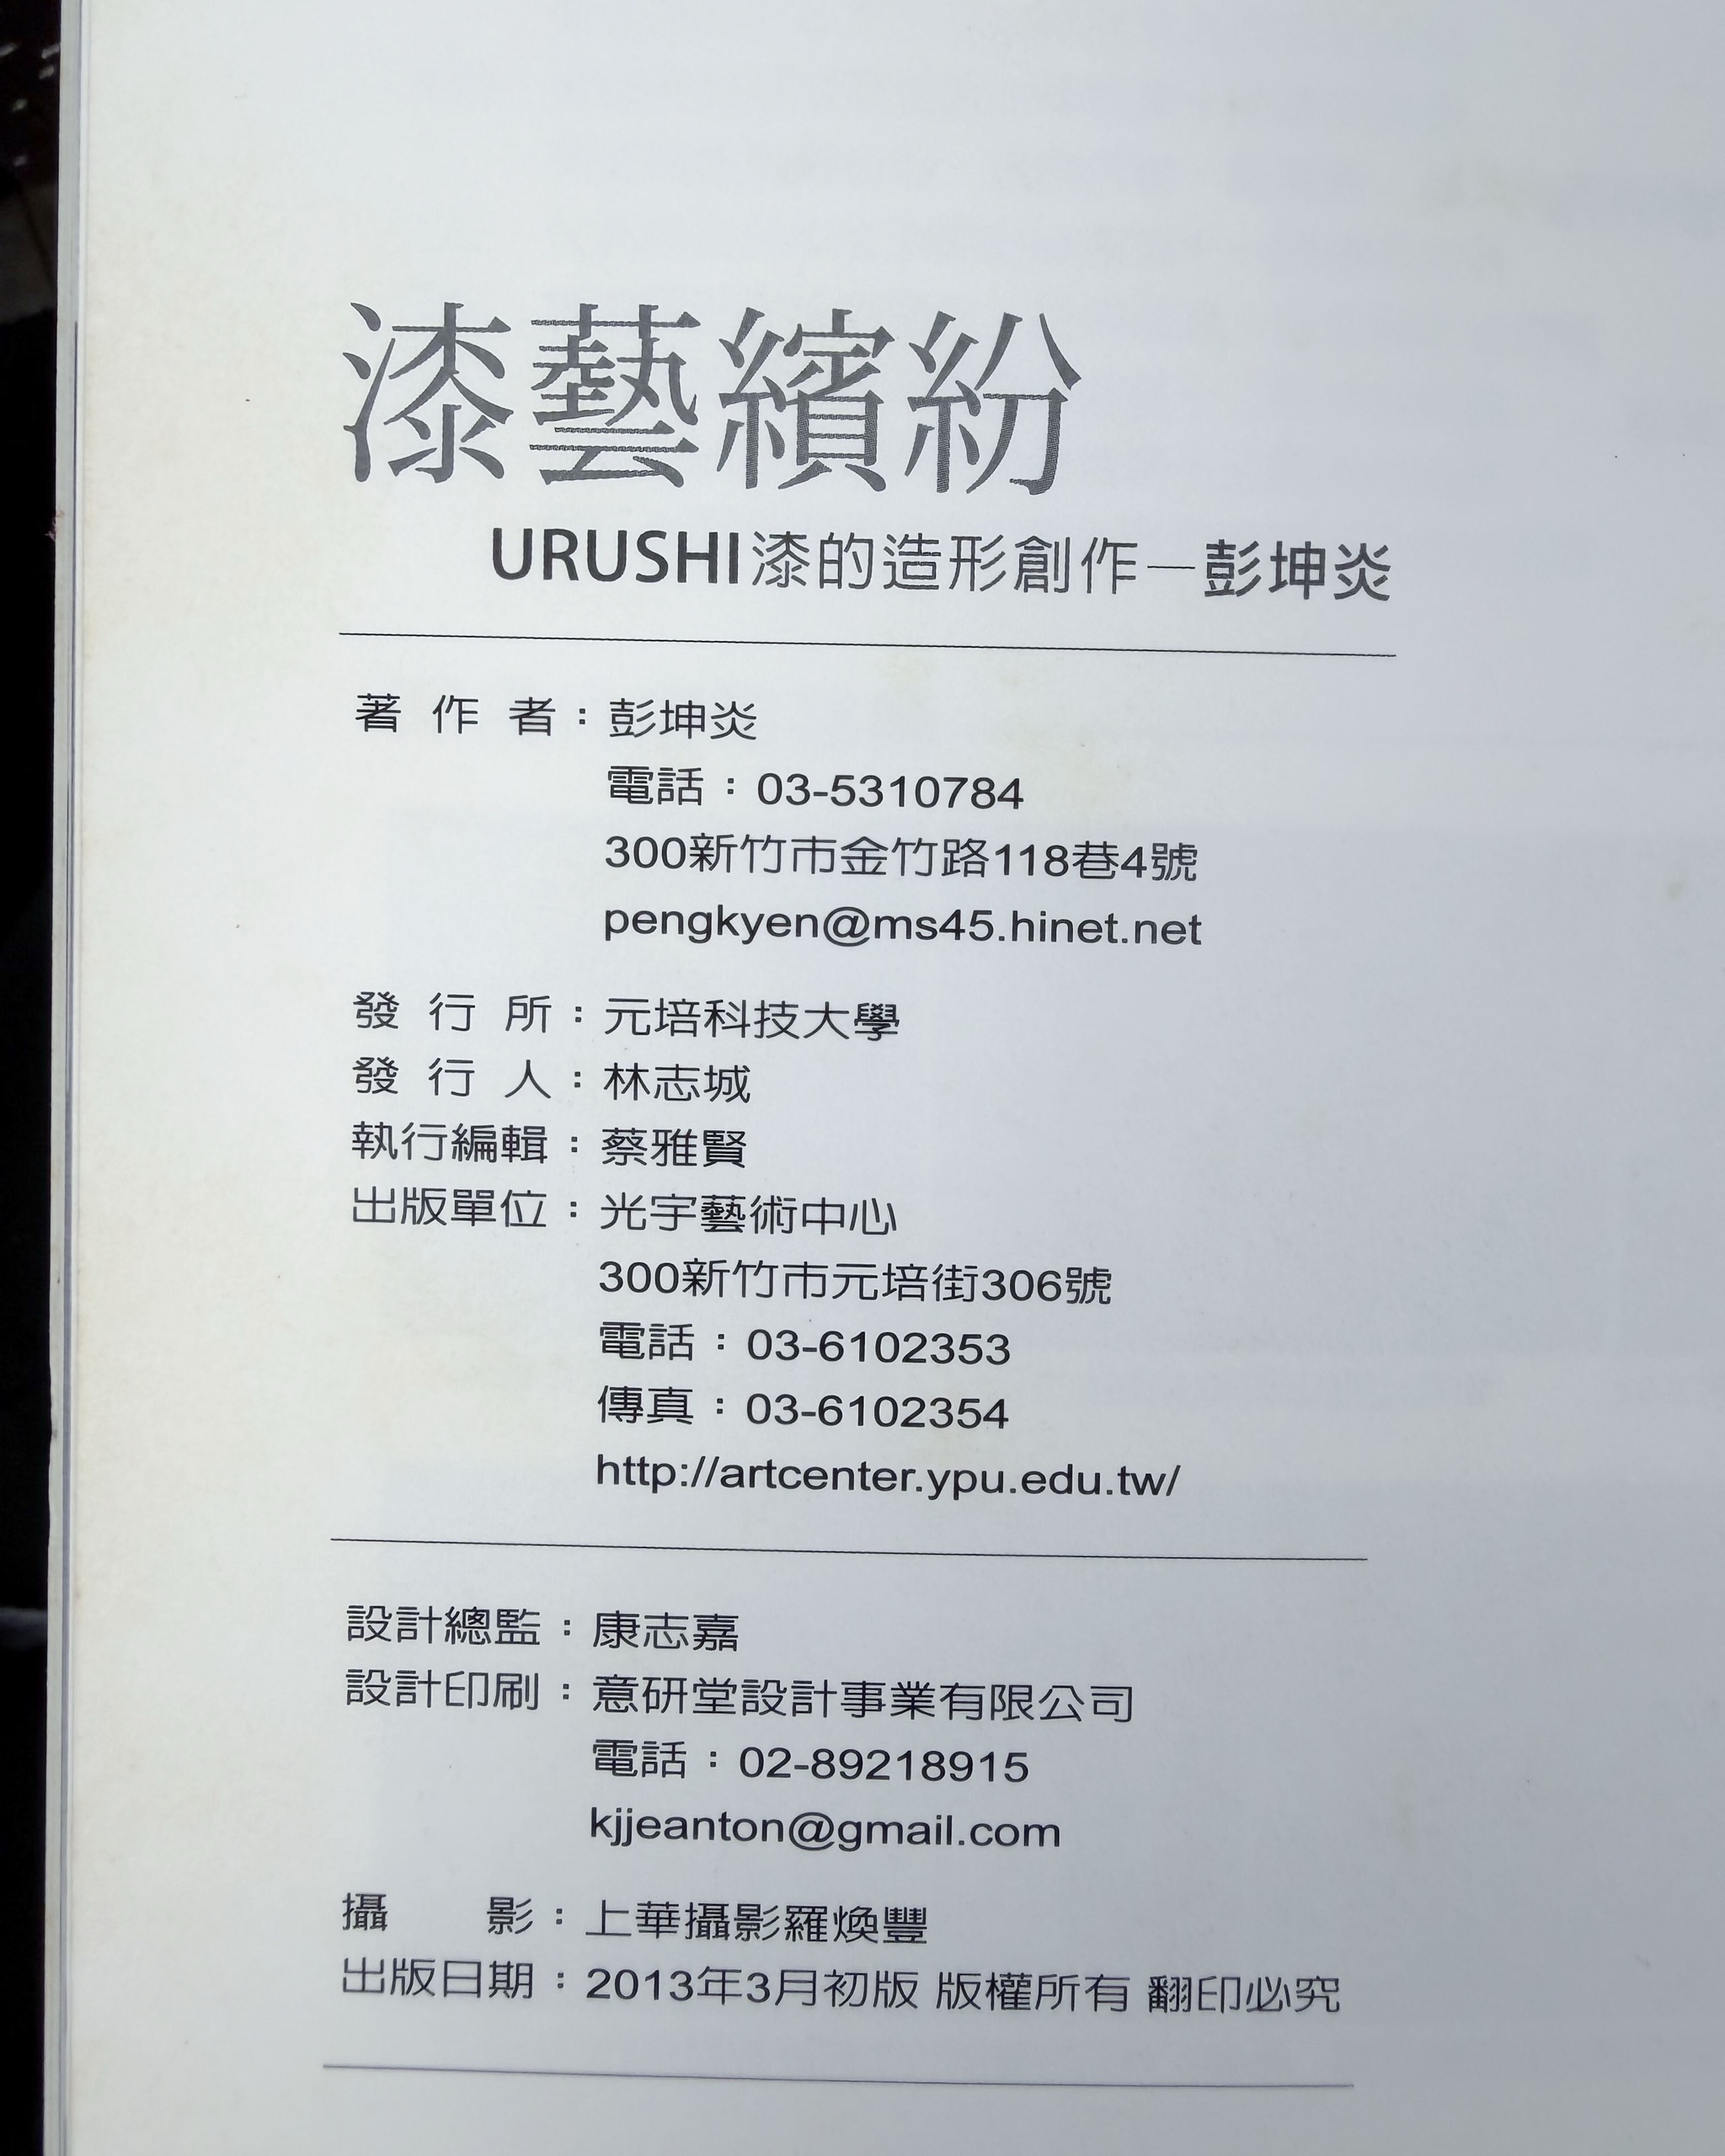 漆藝繽紛
URUSHI漆的造形創作—彭坤炎
著作者：彭坤炎
電話：03-5310784
300新竹市金竹路118巷4號
pengkyen@ms45.hinet.net
發行所：元培科技大學
發行人：林志城
執行編輯：蔡雅賢
出版單位：光宇藝術中心
300新竹市元培街306號
電話：03-6102353
傳真：03-6102354
http://artcenter.ypu.edu.tw/
設計總監：康志嘉
設計印刷：意研堂設計事業有限公司
電話：02-89218915
kjjeanton@gmail.com
攝影：上華攝影羅煥豐
出版日期：2013年3月初版 版權所有 翻印必究